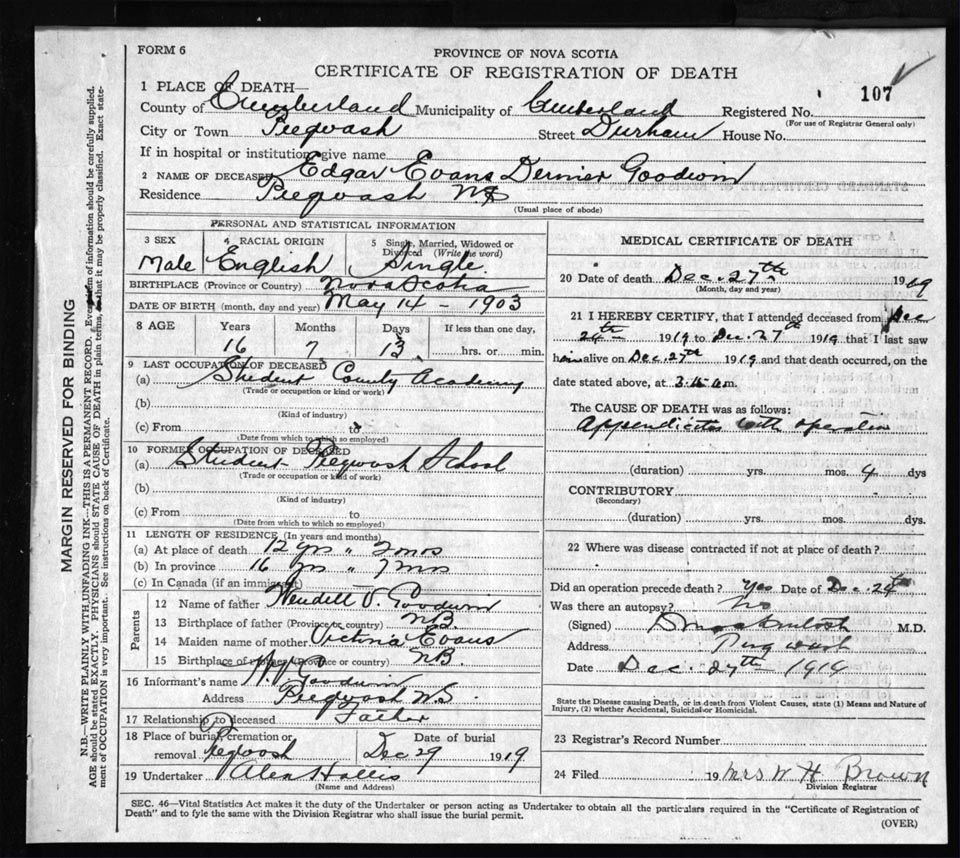 FORM 6
PROVINCE OF NOVA SCOTIA
CERTIFICATE OF REGISTRATION OF DEATH
107
1 PLACE OF DEATH—
County of Cumberland Municipality of Cumberland Registered No.
(For use of Registrar General only)
City or Town Pugwash Street Durham House No.
If in hospital or institution give name
2 NAME OF DECEASED Edgar Evans Dernier Goodwin
Residence Pugwash NS
(Usual place of abode)
PERSONAL AND STATISTICAL INFORMATION
3 SEX Male
4 RACIAL ORIGIN English
5 Single, Married, Widowed or Divorced (Write the word) Single.
BIRTHPLACE (Province or Country) Nova Scotia
DATE OF BIRTH (month, day and year) May 14 - 1903
8 AGE Years Months Days If less than one day,
16 7 13 hrs. or min.
9 LAST OCCUPATION OF DECEASED
(a) Student County Academy
(Trade or occupation or kind or work)
(b)
(Kind of industry)
(c) From to
(Date from which to which so employed)
10 FORMER OCCUPATION OF DECEASED
(a) Student Pugwash School
(Trade or occupation or kind of work)
(b)
(Kind of industry)
(c) From to
(Date from which to which so employed)
11 LENGTH OF RESIDENCE (In years and months)
(a) At place of death 12 yrs " 2 mos
(b) In province 16 yrs " 7 mos
(c) In Canada (if an immigrant)
Parents
12 Name of father Wendell V. Goodwin
13 Birthplace of father (Province or country) N.B.
14 Maiden name of mother Victoria Evans
15 Birthplace of mother (Province or country) N.B.
16 Informant's name Goodwin
Address Pugwash N.S.
17 Relationship to deceased Father
18 Place of burial, cremation or removal Pugwash
Date of burial Dec 29 1919
19 Undertaker Alex Hollis
(Name and Address)
MEDICAL CERTIFICATE OF DEATH
20 Date of death Dec. 27th 1919
(Month, day and year)
21 I HEREBY CERTIFY, that I attended deceased from Dec
24th 1919 to Dec. 27th 1919 that I last saw
him alive on Dec. 27th 1919 and that death occurred, on the
date stated above, at 3.15 a.m.
The CAUSE OF DEATH was as follows:
Appendicites with operation
(duration) yrs. mos. 4 dys
CONTRIBUTORY
(Secondary)
(duration) yrs. mos. dys.
22 Where was disease contracted if not at place of death?
Did an operation precede death? Yes Date of Dec. 24th
Was there an autopsy? No
(Signed) M.D.
Address Pugwash
Date Dec. 27th 1919
State the Disease causing Death, or in death from Violent Causes, state (1) Means and Nature of
Injury, (2) whether Accidental, Suicidal or Homicidal.
23 Registrar's Record Number
24 Filed 19 Mrs W H Brown
Division Registrar
SEC. 46—Vital Statistics Act makes it the duty of the Undertaker or person acting as Undertaker to obtain all the particulars required in the "Certificate of Registration of
Death" and to fyle the same with the Division Registrar who shall issue the burial permit.
(OVER)
MARGIN RESERVED FOR BINDING
N.B.—WRITE PLAINLY WITH UNFADING INK—THIS IS A PERMANENT RECORD. Every item of information should be carefully supplied.
AGE should be stated EXACTLY. PHYSICIANS should STATE CAUSE OF DEATH in plain terms, so that it may be properly classified. Exact state-
ment of OCCUPATION is very important. See instructions on back of Certificate.